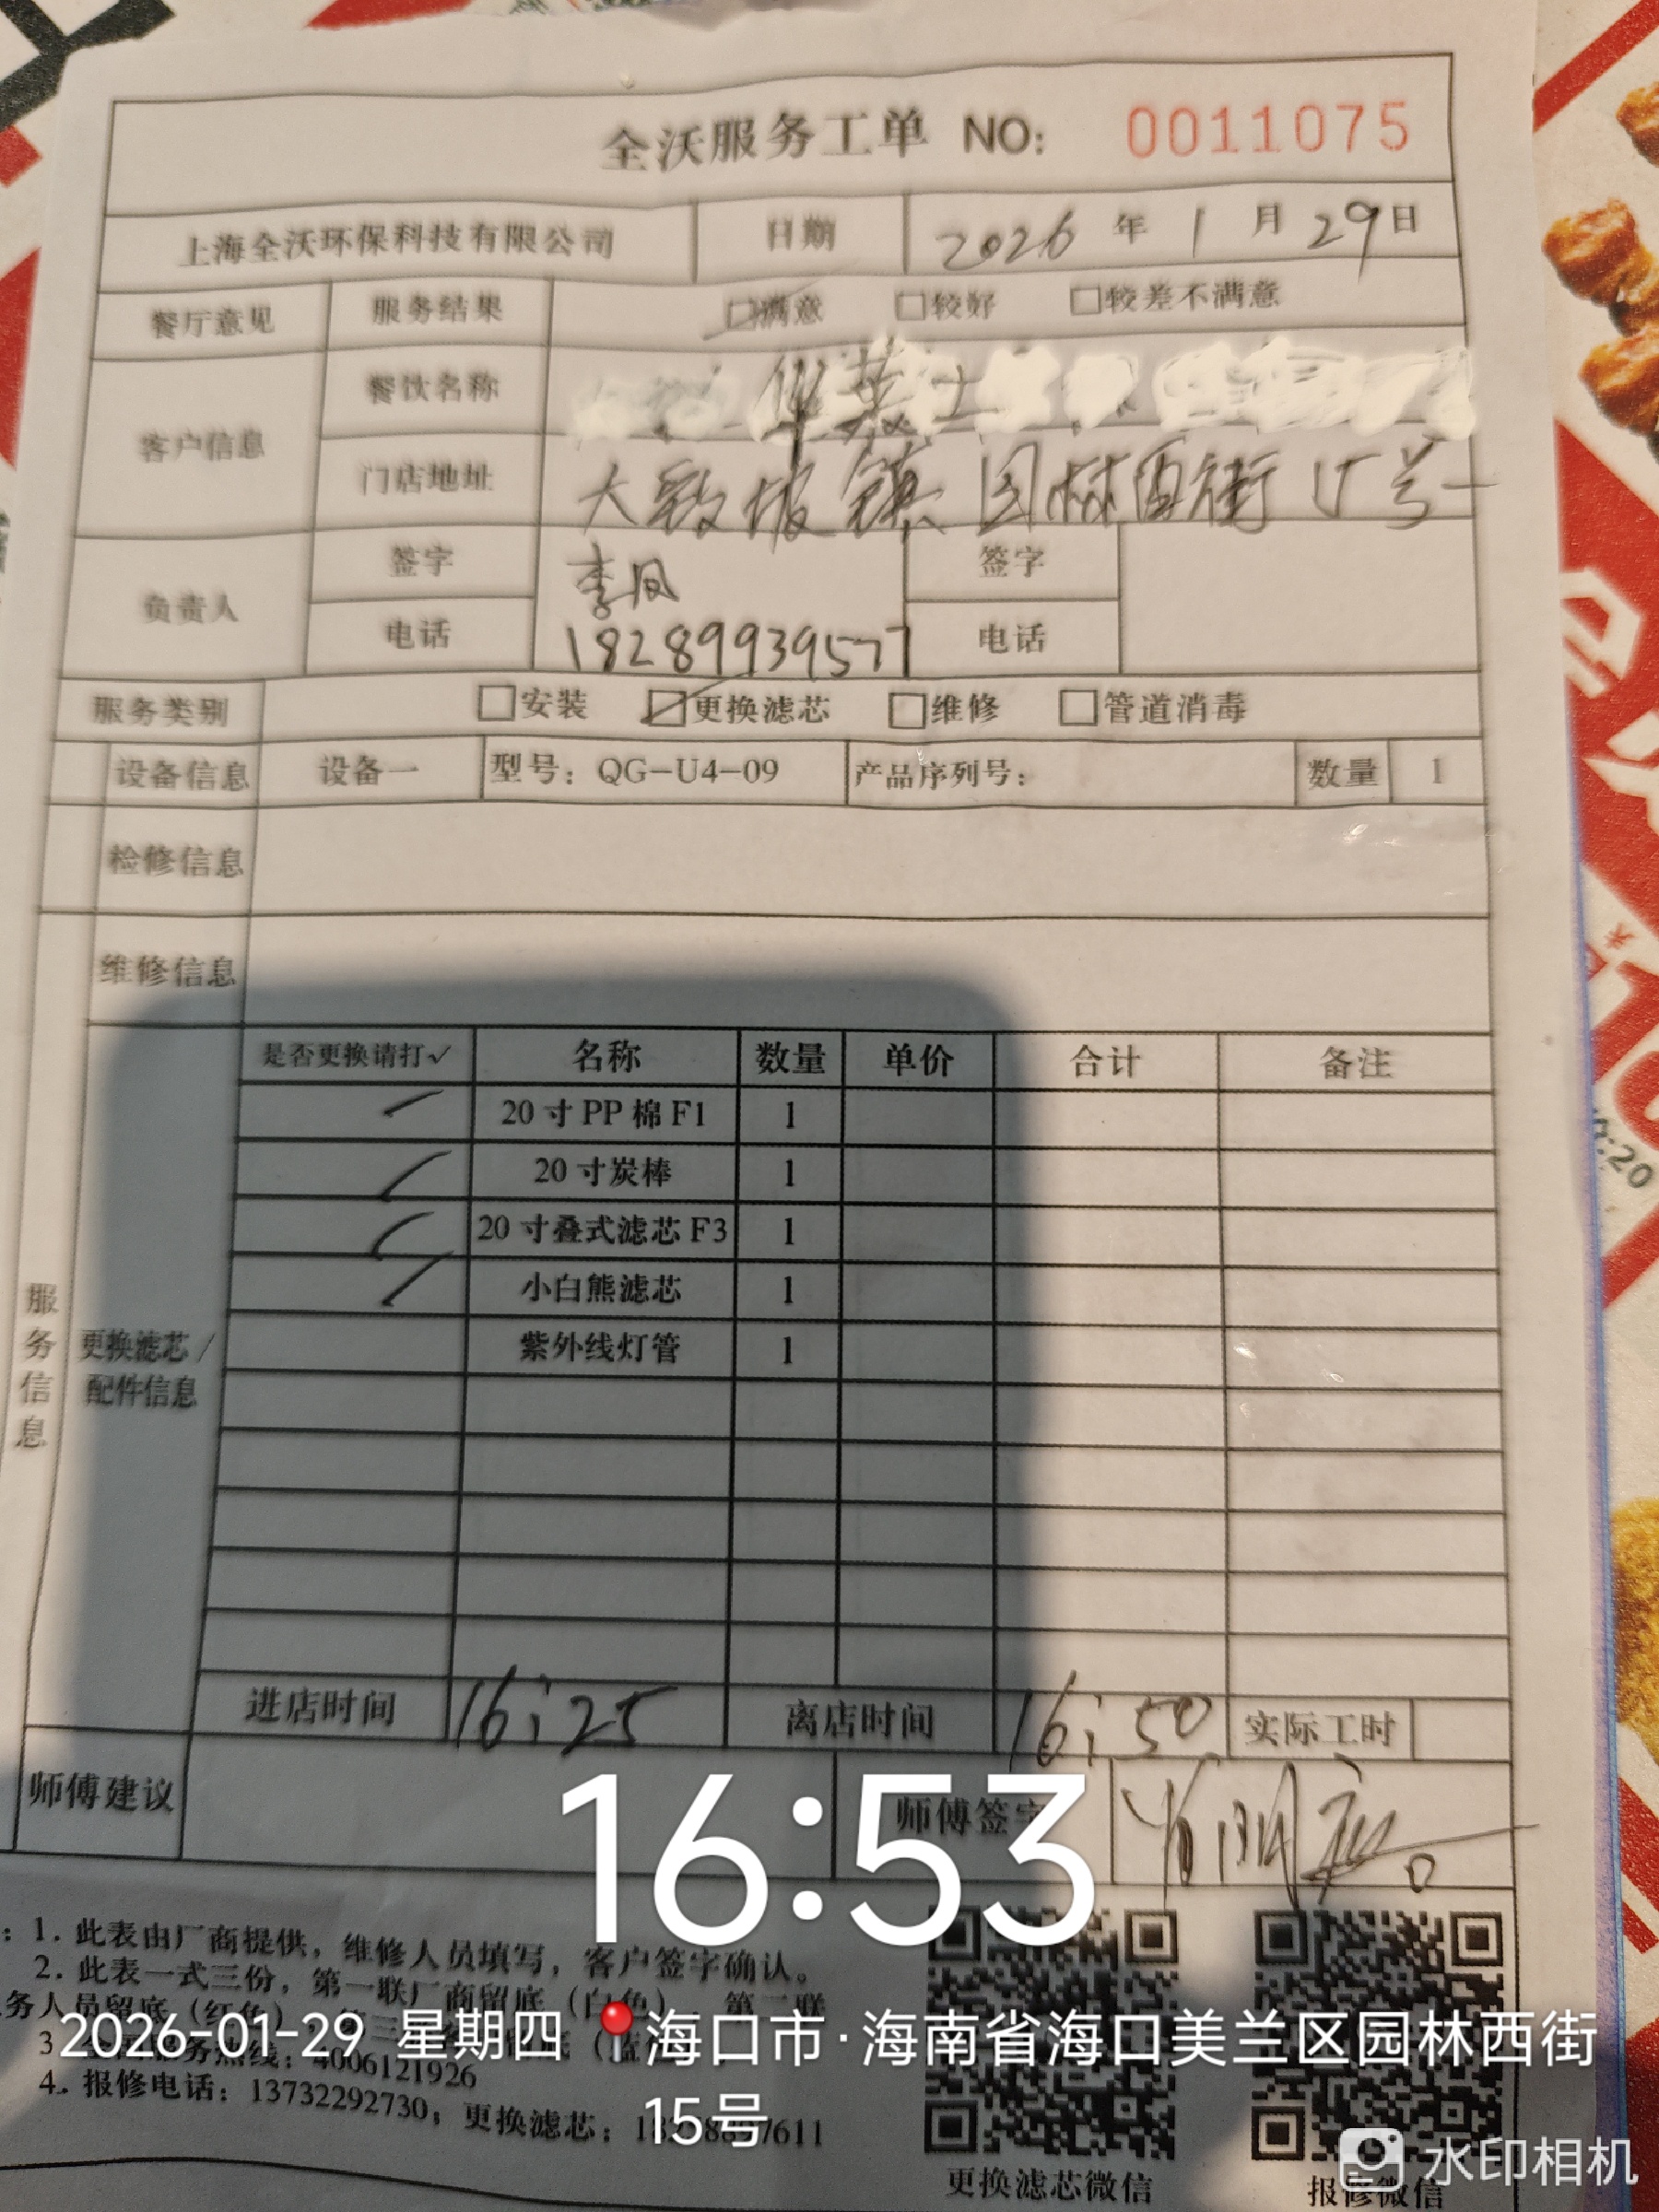 全沃服务工单 NO: 0011075
上海全沃环保科技有限公司 日期 2026 年 1 月 29 日
餐厅意见 服务结果 ☑满意 □较好 □较差不满意
客户信息 餐饮名称 华莱士
门店地址 大致坡镇园林西街15号
负责人 签字 李凤 签字
电话 18289939577 电话
服务类别 □安装 ☑更换滤芯 □维修 □管道消毒
设备信息 设备一 型号：QG-U4-09 产品序列号： 数量 1
检修信息
维修信息
服务信息
更换滤芯/
配件信息
是否更换请打✓ 名称 数量 单价 合计 备注
✓ 20寸PP棉F1 1
✓ 20寸炭棒 1
✓ 20寸叠式滤芯F3 1
✓ 小白熊滤芯 1
紫外线灯管 1
进店时间 16:25 离店时间 16:50 实际工时
师傅建议 师傅签字
16:53
：1. 此表由厂商提供，维修人员填写，客户签字确认。
2. 此表一式三份，第一联厂商留底（白色），第二联
务人员留底（红色）
2026-01-29 星期四 海口市·海南省海口美兰区园林西街
15号
4006121926
4. 报修电话：13732292730；更换滤芯：
更换滤芯微信 报修微信
水印相机